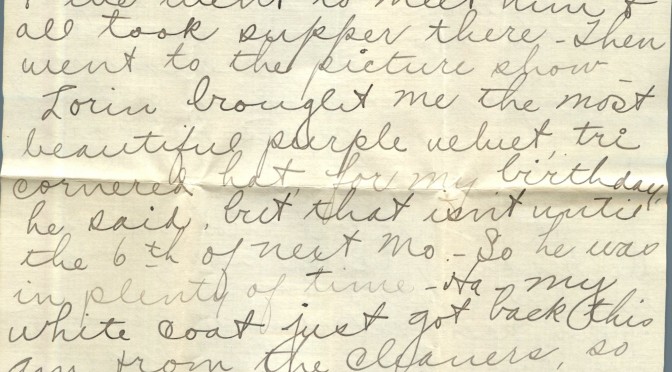 went to meet him &
all took supper there - Then
went to the picture show -
Lorin brought me the most
beautiful purple velvet, tri
cornered hat, for my birthday,
he said, but that isn't until
the 6th of next Mo. - So he was
in plenty of time - Ha - my
white coat just got back (this
am from the cleaners, so